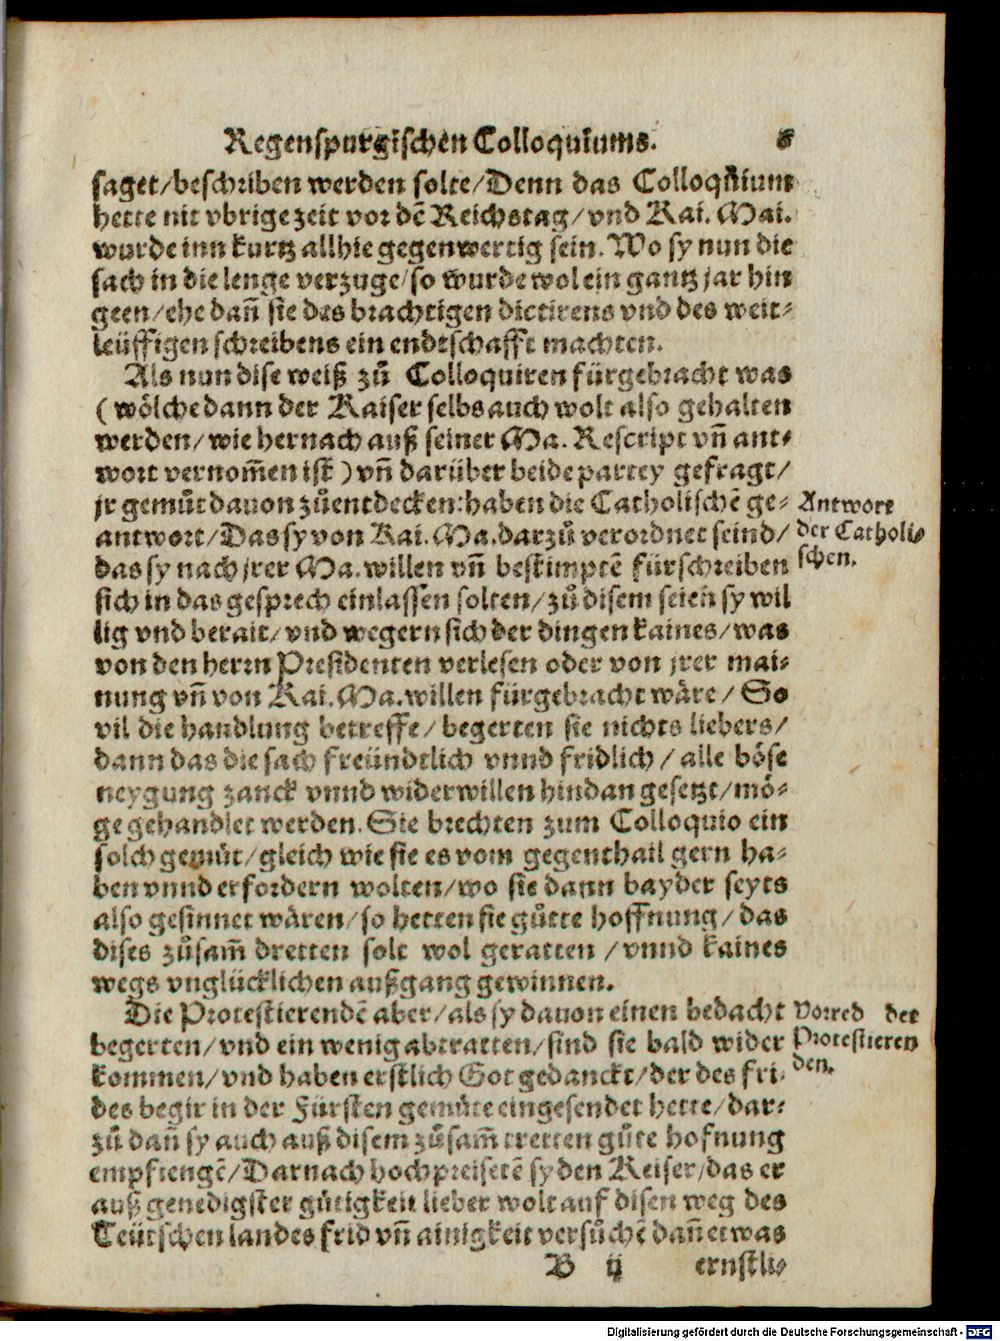 Regenspurgischen Colloquiums. 6
saget/beschriben werden solte/Denn das Colloquium
hette nit vbrige zeit vor dẽ Reichstag/vnd Kai. Mai.
wurde inn kurtz allhie gegenwertig sein. Wo sy nun die
sach in die lenge verzuge/so wurde wol ein gantz jar hin
geen/ehe dañ sie des brachtigen dictirens vnd des weit-
leüffigen schreibens ein endtschafft machten.
Als nun dise weiß zů Colloquiren fürgebracht was
(wölche dann der Kaiser selbs auch wolt also gehalten
werden/wie hernach auß seiner Ma. Rescript vñ ant-
wort vernom̃en ist) vñ darüber beide partey gefragt/
jr gemůt dauon zůentdecken: haben die Catholischẽ ge-
antwort/Das sy von Kai. Ma. darzů verordnet seind/
das sy nach jrer Ma. willen vñ bestimptẽ fürschreiben
sich in das gesprech einlassen solten/zů disem seien sy wil
lig vnd berait/vnd wegern sich der dingen kaines/was
von den herrn Presidenten verlesen oder von jrer mai-
nung vñ von Kai. Ma. willen fürgebracht wäre/So
vil die handlung betreffe/begerten sie nichts liebers/
dann das die sach freündtlich vnnd fridlich/alle böse
neygung zanck vnnd widerwillen hindan gesetzt/mö-
ge gehandlet werden. Sie brechten zum Colloquio ein
solch gemüt/gleich wie sie es vom gegenthail gern ha-
ben vnnd erfordern wolten/wo sie dann bayder seyts
also gesinnet wären/so hetten sie gůtte hoffnung/das
dises zůsam̃ dretten solt wol geratten/vnnd kaines
wegs vnglücklichen außgang gewinnen.
Die Protestierendẽ aber/als sy dauon einen bedacht
begerten/vnd ein wenig abtratten/sind sie bald wider
kommen/vnd haben erstlich Got gedanckt/der des fri-
des begir in der Fürsten gemüte eingesendet hette/dar-
zů dañ sy auch auß disem zůsam̃ tretten gůte hofnung
empfiengẽ/Darnach hochpreisetẽ sy den Keiser/das er
auß genedigster gütigkeit lieber wolt auf disen weg des
Teütschen landes frid vñ ainigkeit versůchẽ dañ etwas
B ij ernstli-
Antwort
der Catholi-
schen.
Vorred der
Protestieren
den.
Digitalisierung gefördert durch die Deutsche Forschungsgemeinschaft - DFG